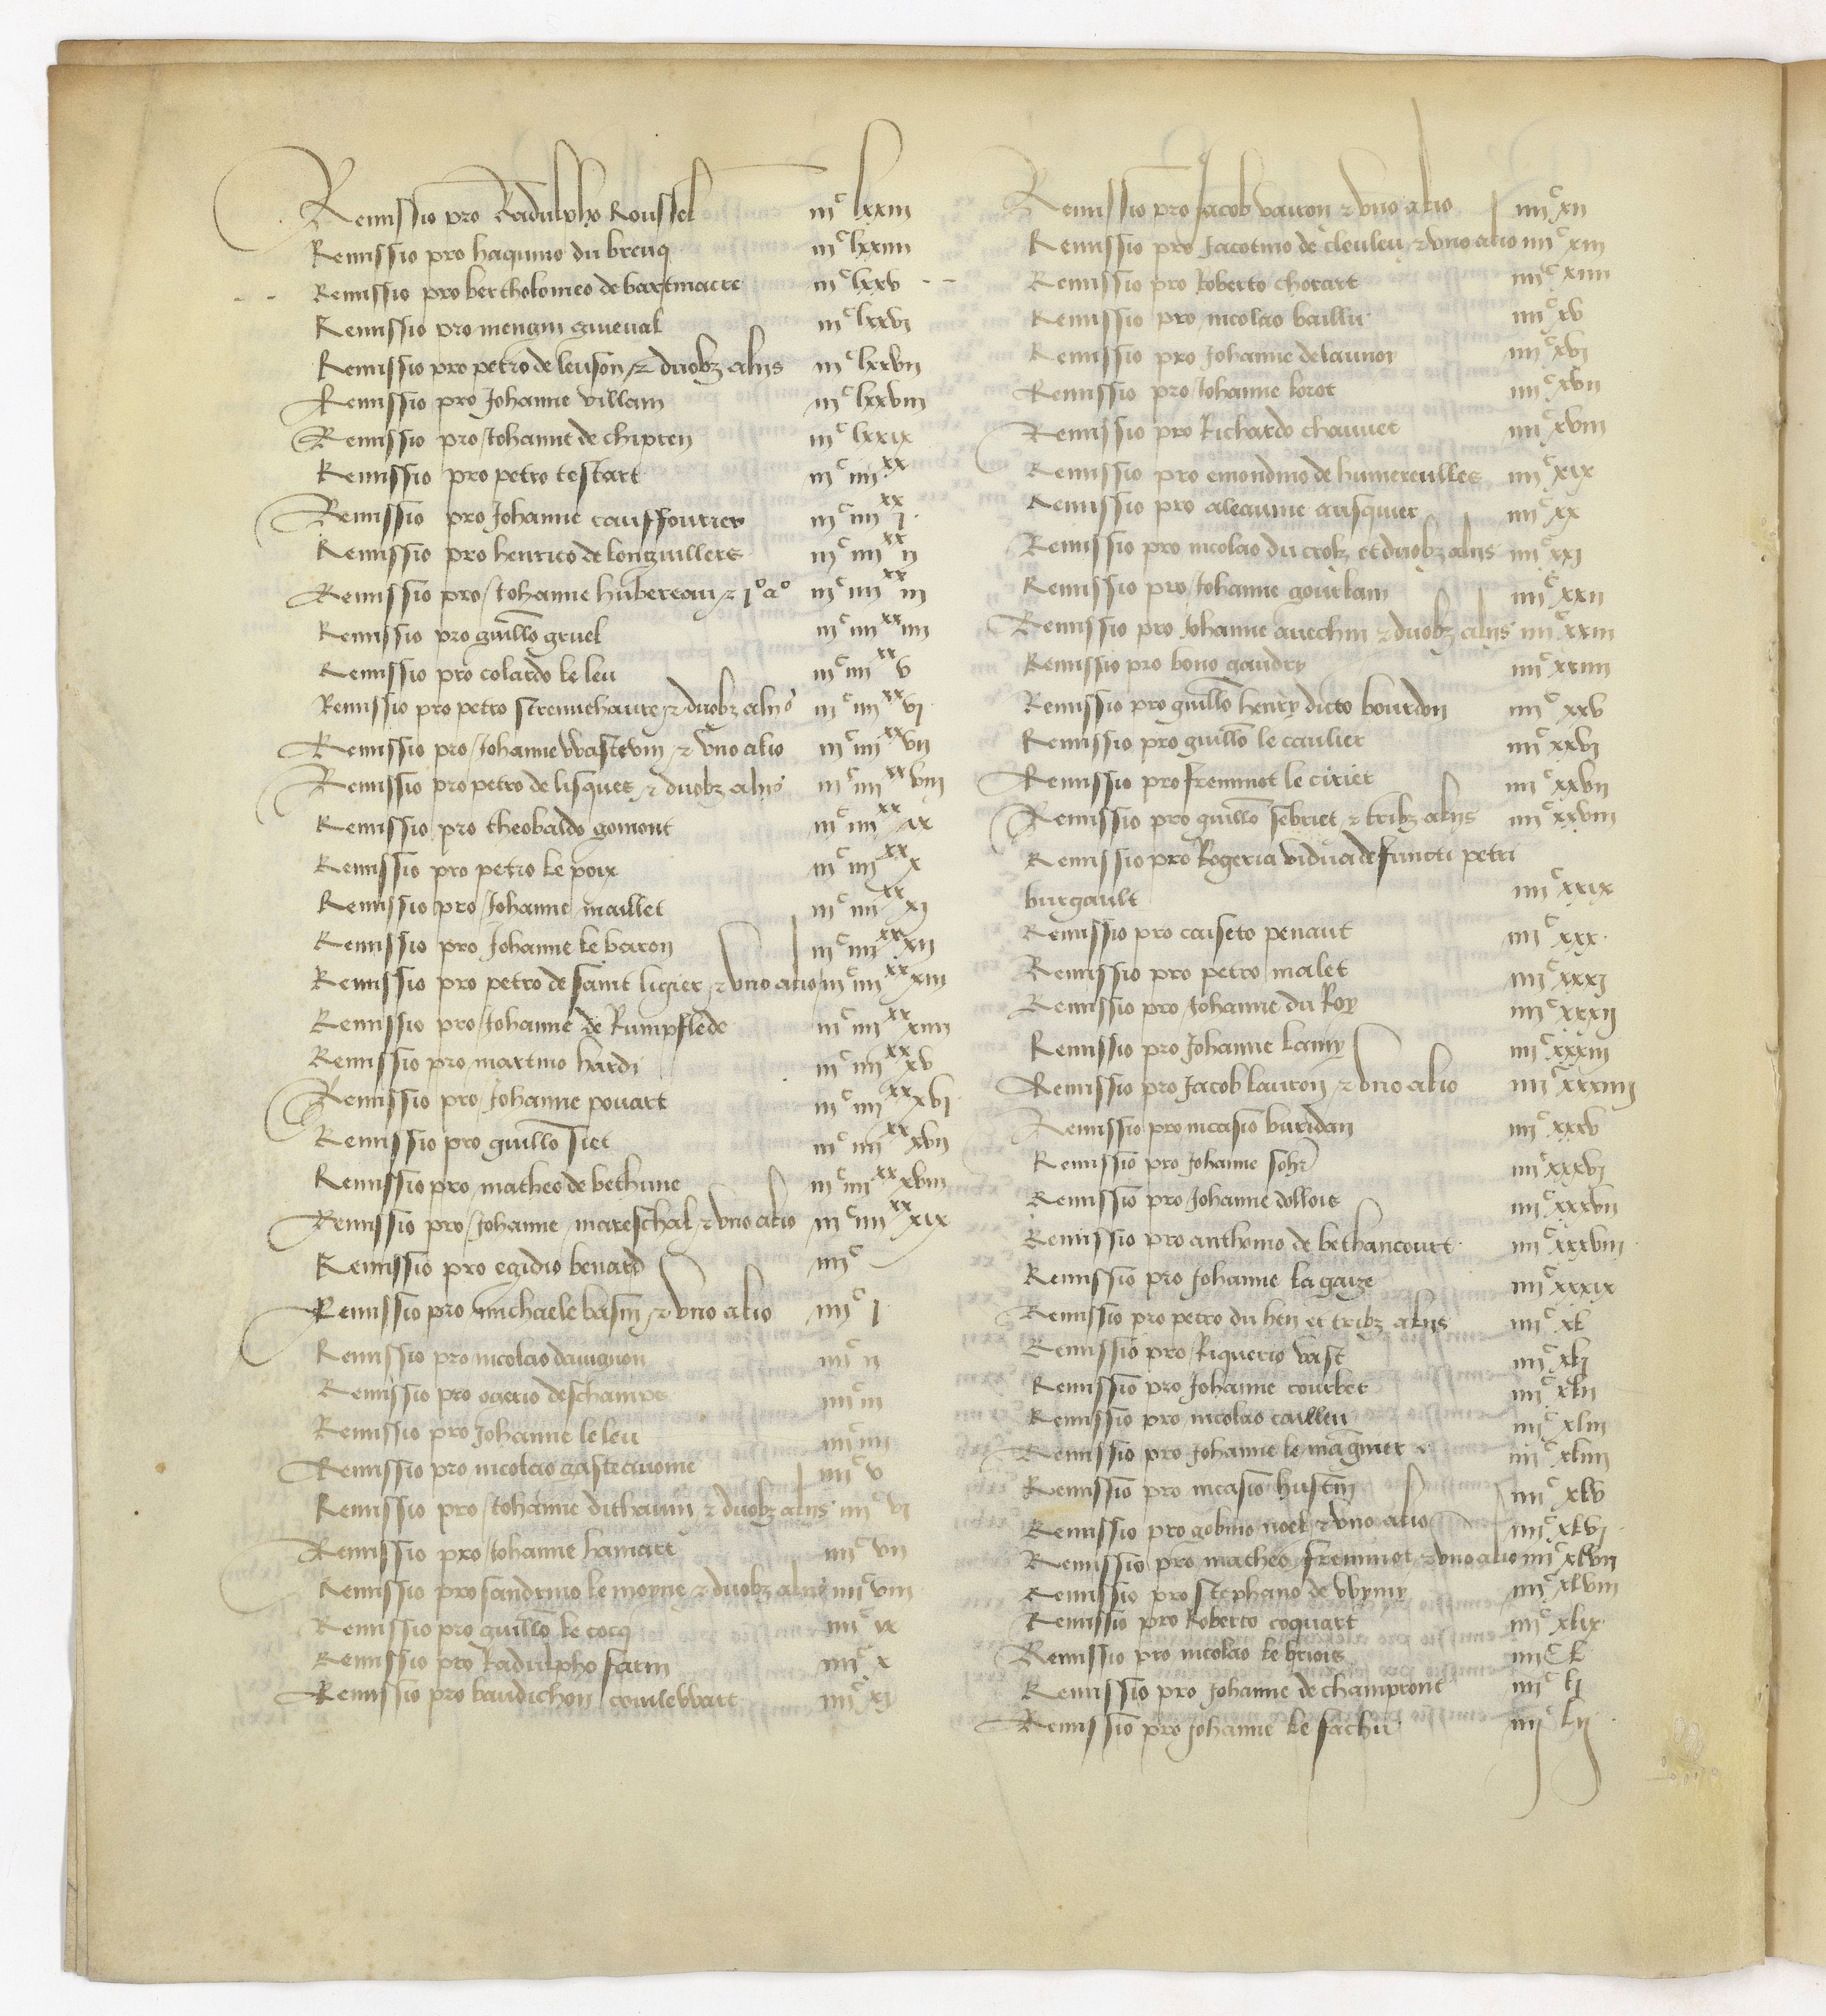 Remissio pro Radulpho Roussel iijᶜ lxxiij
Remissio pro haquino du breuq iijᶜ lxxiiij
Remissio pro bertholomeo de bartmacre iijᶜ lxxv
Remissio pro mengin guieual iijᶜ lxxvi
Remissio pro petro de leuson / ⁊ duobz alijs iijᶜ lxxvij
Remissio pro Johanne villain iijᶜ lxxviij
Remissio pro Johanne de chipren iijᶜ lxxix
Remissio pro petro testart iijᶜ iiijˣˣ
Remissio pro Johanne cauffourier iijᶜ iiijˣˣ j
Remissio pro henrico de longuillers iijᶜ iiijˣˣ ij
Remissio pro Johanne hubereau / ⁊ jº aº iijᶜ iiijˣˣ iij
Remissio pro guillo gruel iijᶜ iiijˣˣ iiij
Remissio pro colardo le leu iijᶜ iiijˣˣ v
Remissio pro petro strennehaure / ⁊ duobz alijs iijᶜ iiijˣˣ vi
Remissio pro Johanne wastevin / ⁊ vno alio iijᶜ iiijˣˣ vij
Remissio pro petro de lisques / ⁊ duobz alijs iijᶜ iiijˣˣ viij
Remissio pro theobaldo gomont iijᶜ iiijˣˣ ix
Remissio pro petro le poix iijᶜ iiijˣˣ x
Remissio pro Johanne maillet iijᶜ iiijˣˣ xj
Remissio pro Johanne le baron iijᶜ iiijˣˣ xij
Remissio pro petro de saint ligier / ⁊ vno alio iijᶜ iiijˣˣ xiij
Remissio pro Johanne de Rumpslede iijᶜ iiijˣˣ xiiij
Remissio pro martino hardi iijᶜ iiijˣˣ xv
Remissio pro Johanne pouart iijᶜ iiijˣˣ xvi
Remissio pro guillo siet iijᶜ iiijˣˣ xvij
Remissio pro matheo de bethune iijᶜ iiijˣˣ xviij
Remissio pro Johanne mareschal / ⁊ vno alio iijᶜ iiijˣˣ xix
Remissio pro egidio benard iiijᶜ
Remissio pro michaele basin / ⁊ vno alio iiijᶜ j
Remissio pro nicolao dauignon iiijᶜ ij
Remissio pro ogerio deschamps iiijᶜ iij
Remissio pro Johanne le leu iiijᶜ iiij
Remissio pro nicolao gasteauoine iiijᶜ v
Remissio pro Johanne dithauin / ⁊ duobz alijs iiijᶜ vi
Remissio pro Johanne hamart iiijᶜ vij
Remissio pro sandrino le moyne / ⁊ duobz alijs iiijᶜ viij
Remissio pro guillo le cocq iiijᶜ ix
Remissio pro Radulpho farin iiijᶜ x
Remissio pro baudichon coulewart iiijᶜ xj
Remissio pro Jacob vairon ⁊ vno alio iiijᶜ xij
Remissio pro Jacotino de cleuleu / ⁊ vno alio iiijᶜ xiij
Remissio pro Roberto chorart iiijᶜ xiiij
Remissio pro nicolao baillii iiijᶜ xv
Remissio pro Johanne delaunoy iiijᶜ xvi
Remissio pro Johanne lorot iiijᶜ xvij
Remissio pro Richardo chauuet iiijᶜ xviij
Remissio pro emondino de humereulles iiijᶜ xix
Remissio pro aleaume ausquier iiijᶜ xx
Remissio pro nicolao du crolz et duobz alijs iiijᶜ xxj
Remissio pro Johanne gourlain iiijᶜ xxij
Remissio pro Johanne auechin ⁊ duobz alijs iiijᶜ xxiij
Remissio pro bono gaudry iiijᶜ xxiiij
Remissio pro guillo henry dicto bourdon iiijᶜ xxv
Remissio pro guillo le caulier iiijᶜ xxvj
Remissio pro freminot le cirier iiijᶜ xxvij
Remissio pro guillo sebriet / ⁊ tribz alijs iiijᶜ xxviij
Remissio pro Rogeria vidua defuncti petri
burgault iiijᶜ xxix
Remissio pro caiseto penaut iiijᶜ xxx
Remissio pro petro malet iiijᶜ xxxj
Remissio pro Johanne du Roy iiijᶜ xxxij
Remissio pro Johanne lamy iiijᶜ xxxiij
Remissio pro Jacob lauron / ⁊ vno alio iiijᶜ xxxiiij
Remissio pro nicasio buridan iiijᶜ xxxv
Remissio pro Johanne sohr iiijᶜ xxxvj
Remissio pro Johanne dollois iiijᶜ xxxvij
Remissio pro anthonio de bethancourt iiijᶜ xxxviij
Remissio pro Johanne la gaize iiijᶜ xxxix
Remissio pro petro du hen et tribz alijs iiijᶜ xl
Remissio pro Riquerio vast iiijᶜ xlj
Remissio pro Johanne courbet iiijᶜ xlij
Remissio pro nicolao cailleu iiijᶜ xliij
Remissio pro Johanne le magnier iiijᶜ xliiij
Remissio pro nicasio hustin iiijᶜ xlv
Remissio pro gobino noel / ⁊ vno alio iiijᶜ xlvj
Remissio pro matheo freminot / ⁊ vno alio iiijᶜ xlvij
Remissio pro stephano de wymy iiijᶜ xlviij
Remissio pro Roberto coquart iiijᶜ xlix
Remissio pro nicolao le briois iiijᶜ l
Remissio pro Johanne de champront iiijᶜ lj
Remissio pro Johanne le sachu iiijᶜ lij